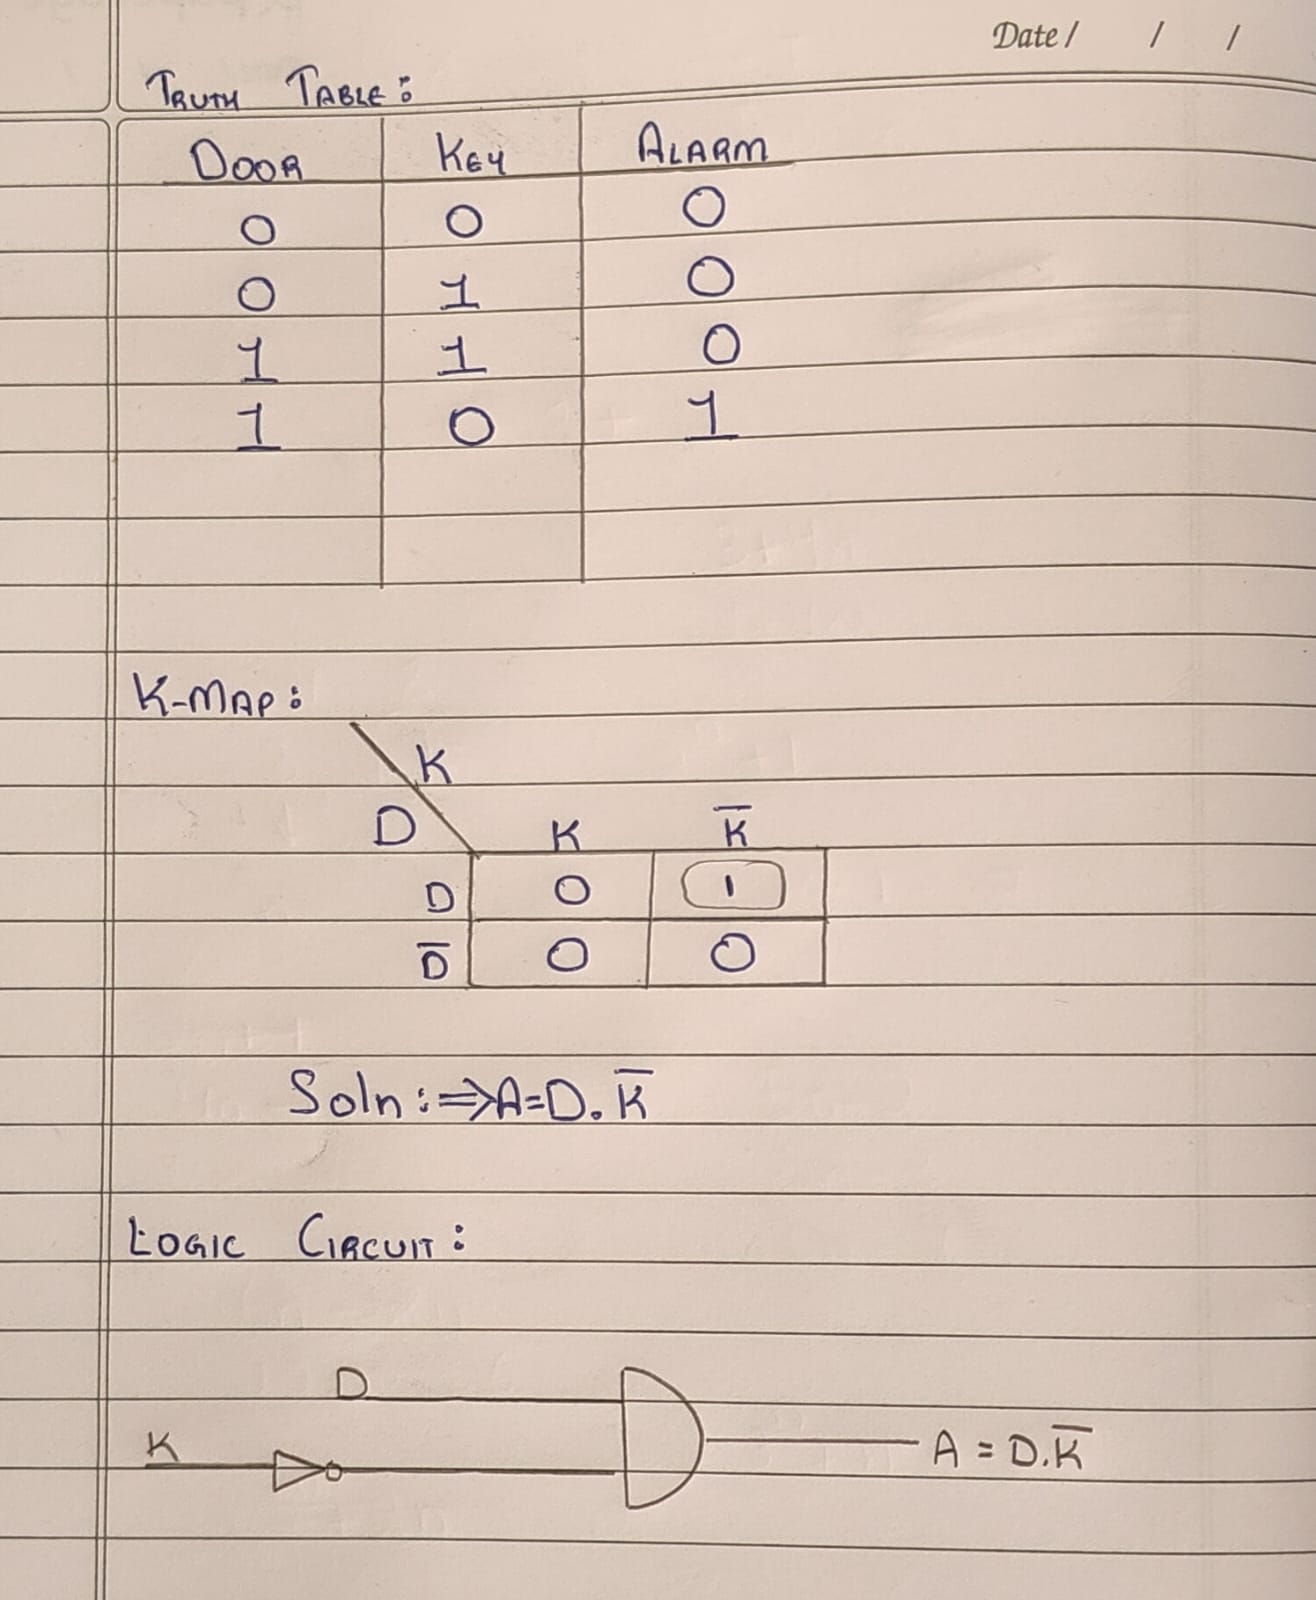 Date/ / /
TRUTH TABLE:
DOOR KEY ALARM
0 0 0
0 1 0
1 1 0
1 0 1
K-MAP:
K
D K K̅
D 0 1
D̅ 0 0
Soln:⇒A=D.K̅
LOGIC CIRCUIT:
D
K A = D.K̅